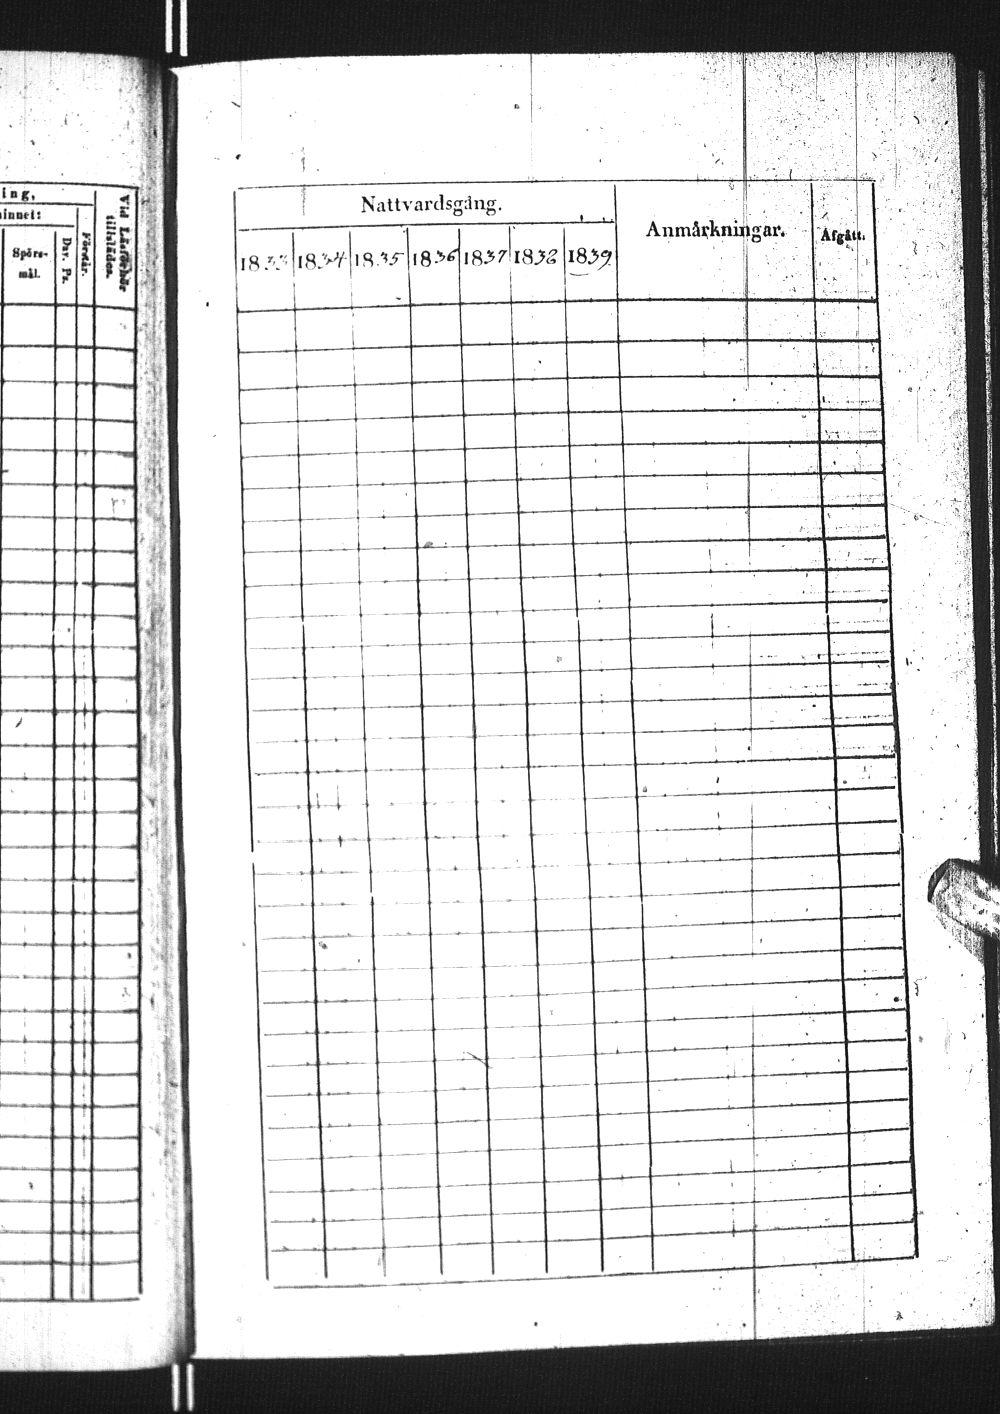 ing,
innet:
Spörs-
mål.
Dav. Ps.
Förstår.
Vid Läsförhör
tillstädes.
Nattvardsgång.
Anmårkningar.
Afgått.
1833 1834 1835 1836 1837 1838 1839